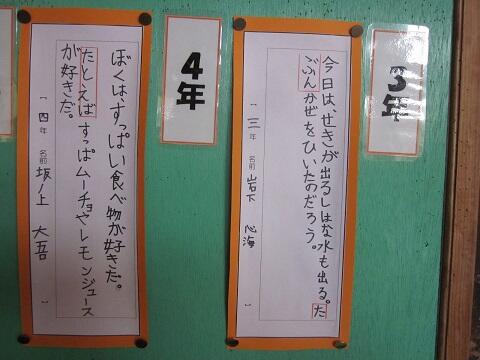 3年
今日は、せきが出るしはな水も出る。た
ぶんかぜをひいたのだろう。
三年 名前 岩下 心海
4年
ぼくは、すっぱい食べ物が好きだ。
たとえばすっぱムーチョやレモンジュース
が好きだ。
四年 名前 坂ノ上 大吾